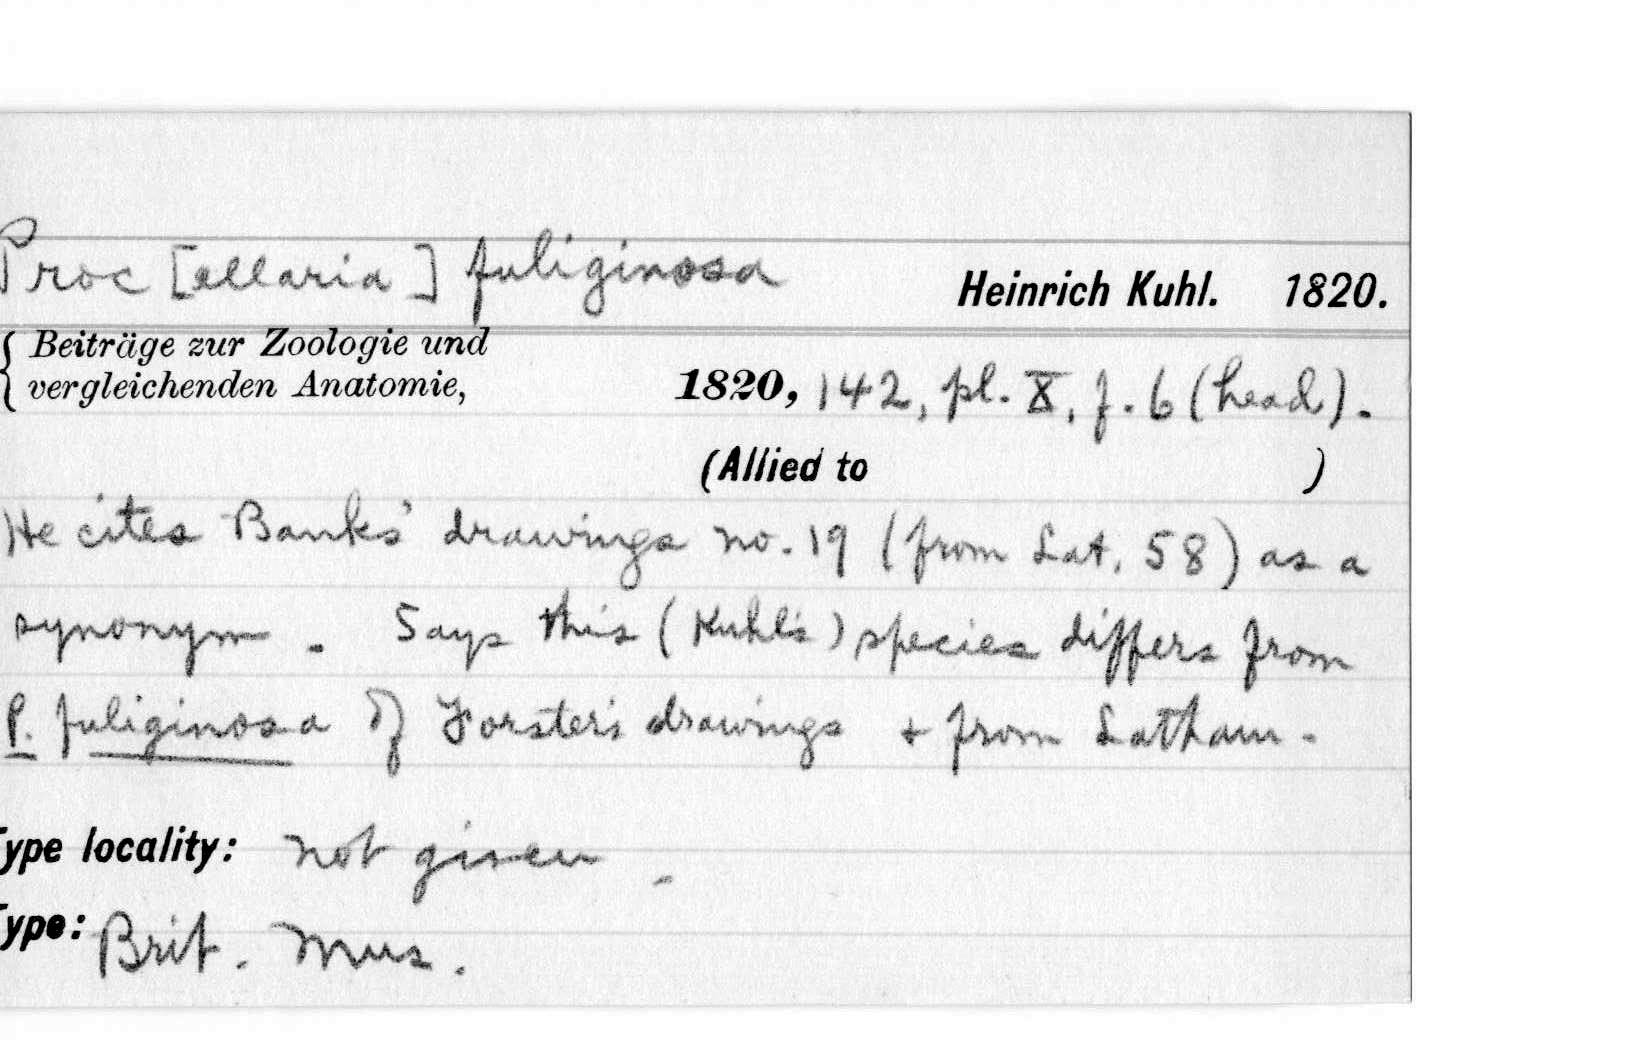 Proc [ellaria] fuliginosa Heinrich Kuhl. 1820.
{ Beiträge zur Zoologie und
vergleichenden Anatomie, 1820, 142, pl. X, f. 6 (head).
(Allied to )
He cites Banks' drawings no. 19 (from Lat. 58) as a
synonym. Says this (Kuhl's) species differs from
P. fuliginosa of Forster's drawings + from Latham.
Type locality: not given.
Type: Brit. Mus.